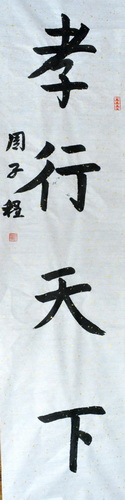 孝行天下
周子程